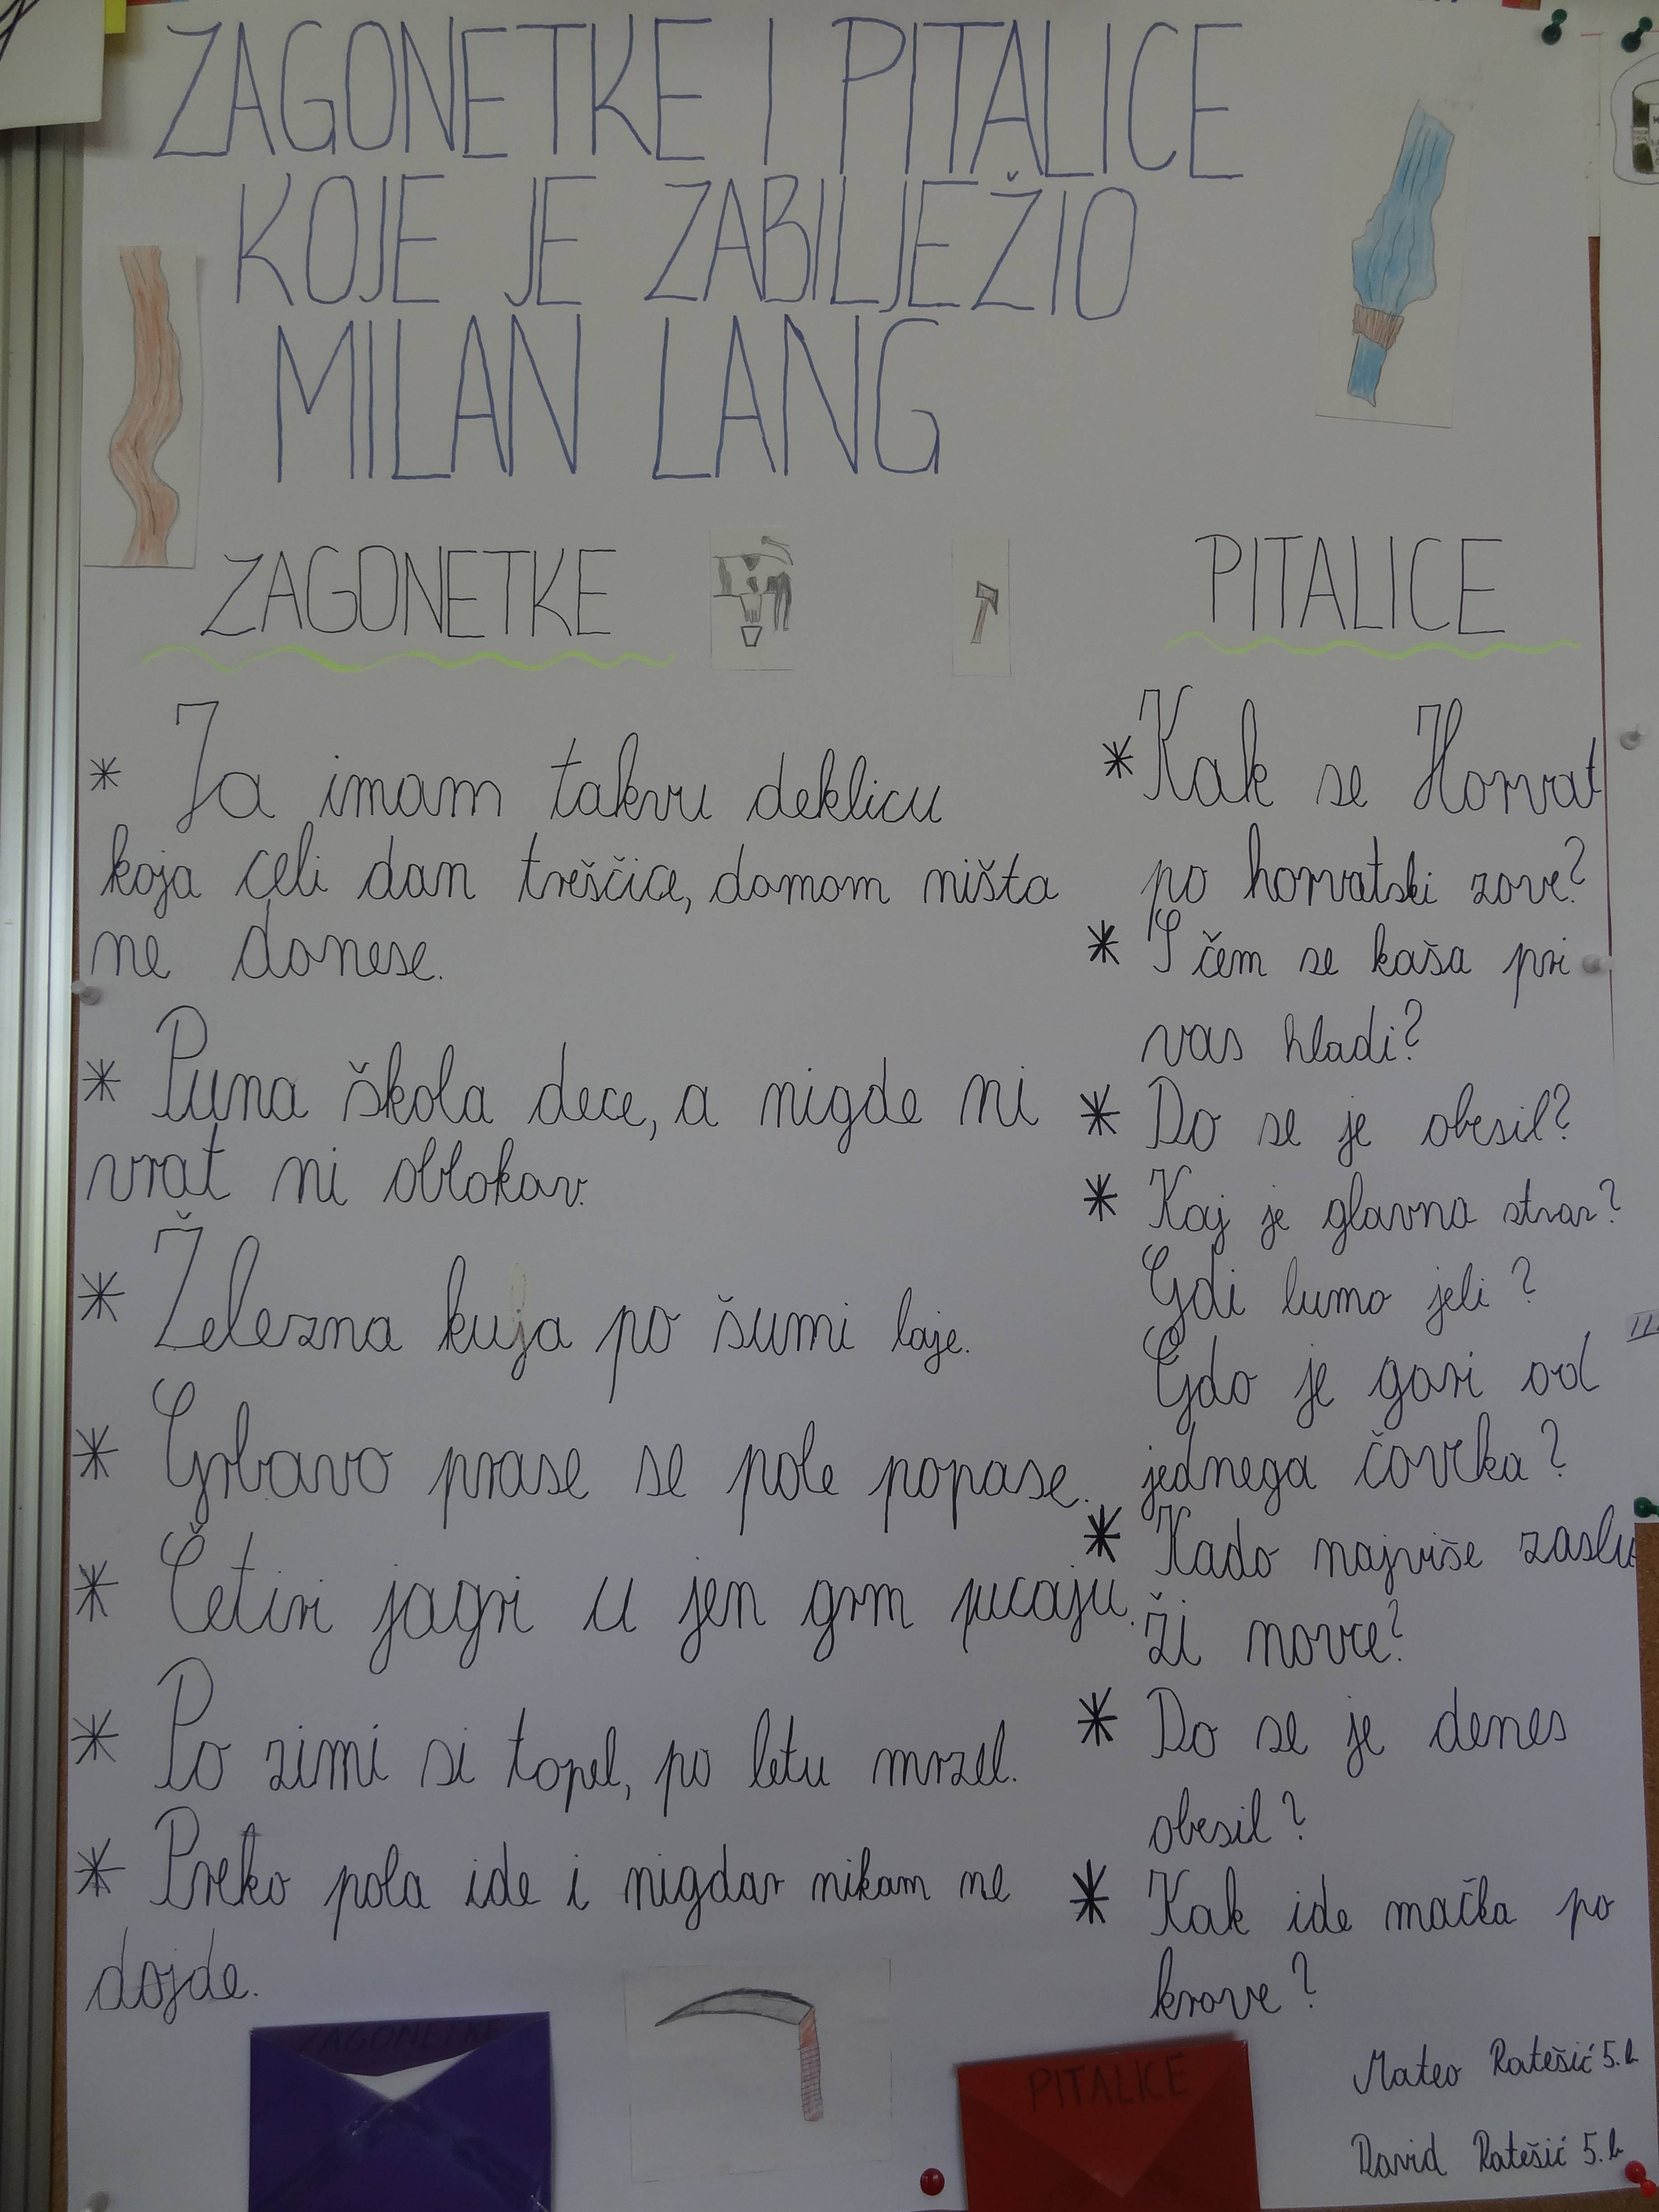 ZAGONETKE I PITALICE
KOJE JE ZABILJEŽIO
MILAN LANG
ZAGONETKE
* Ja imam takvu deklicu
koja celi dan treščice, domom ništa
ne donese.
* Puna škola dece, a nigde ni
vrat ni oblokov.
* Železna kuja po šumi laje.
* Grbavo prase se pole popase.
* Četiri jagri u jen grm pucaju.
* Po zimi si topel, po letu mrzel.
* Preko pola ide i nigdar nikam ne
dojde.
ZAGONETKE
PITALICE
* Kak se Horvat
po horvatski zove?
* S čem se kaša pri
vas hladi?
* Do se je obesil?
* Kaj je glavna stvar?
Gdi lumo jeli?
Gdo je gori od
jednega čoveka?
* Kado najviše zaslu
ži novce?
* Do se je denes
obesil?
* Kak ide mačka po
krove?
PITALICE
Mateo Ratešić 5.b
David Ratešić 5.b